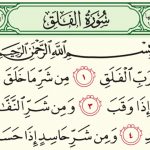 سُورَةُ الْفَلَقِ
بِسْمِ اللَّهِ الرَّحْمَٰنِ الرَّحِيمِ
رَبِّ الْفَلَقِ ١ مِن شَرِّ مَا خَلَقَ
إِذَا وَقَبَ ٣ وَمِن شَرِّ النَّفَّا
٤ وَمِن شَرِّ حَاسِدٍ إِذَا حَسَدَ